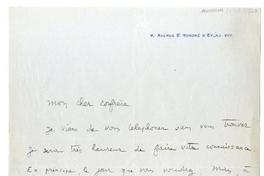 11, AVENUE ST HONORÉ D'EYLAU. XVIe
Mon cher confrère
Je viens de vous telephoner sans vous trouver
Je serai très heureux de faire votre connaissance
En principe le jour que vous voudrez. Mais à